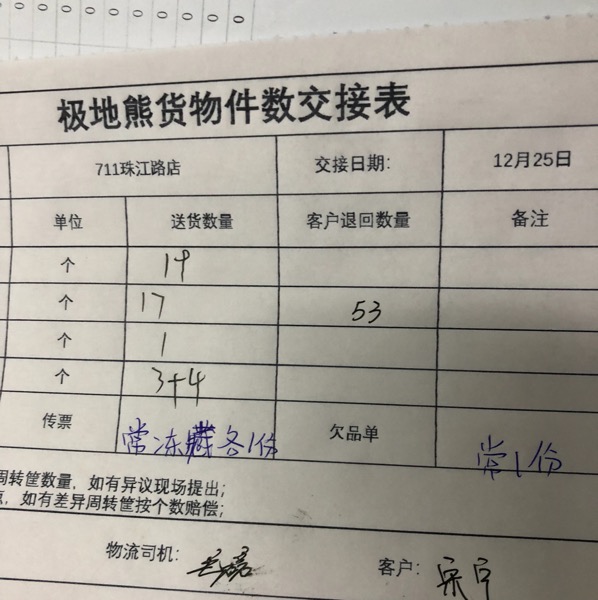 0 0 0 0 0 0 0 0 0 0 0
极地熊货物件数交接表
711珠江路店 交接日期: 12月25日
单位 送货数量 客户退回数量 备注
个 19
个 17 53
个 1
个 3+4
传票 常冻藏各1份 欠品单 常1份
周转筐数量, 如有异议现场提出;
, 如有差异周转筐按个数赔偿;
物流司机: 客户: